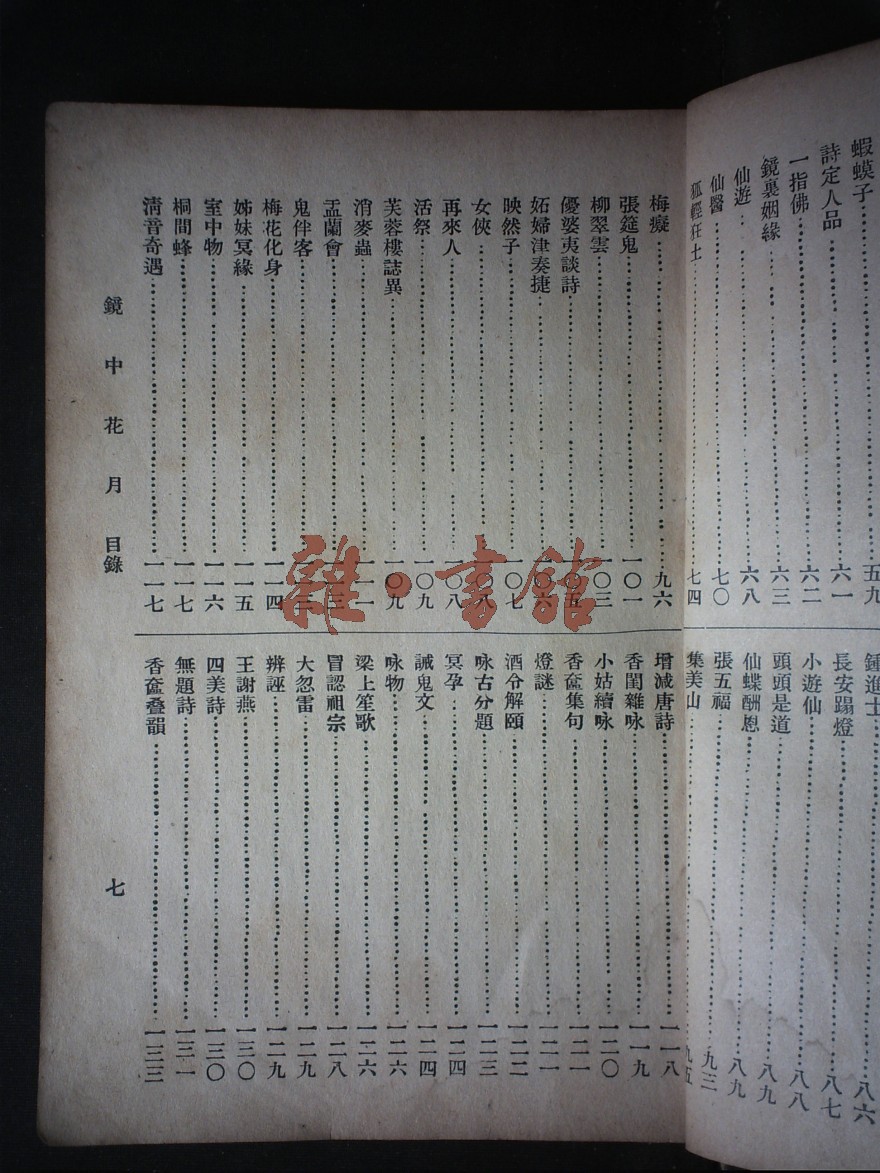 蝦蟆子……五九
詩定人品……六一
一指佛……六二
鏡裏姻緣……六三
仙遊……六八
仙醫……七〇
狐輕狂士……七四
鍾進士……八六
長安蹋燈……八七
小遊仙……八八
頭頭是道……八九
仙蝶酬恩……八九
張五福……九三
集美山……九五
梅癡……九六
張筵鬼……一〇一
柳翠雲……一〇三
優婆夷談詩……
妬婦津奏捷……
映然子……一〇七
女俠……
再來人……一〇八
活祭……一〇九
芙蓉樓誌異……一〇九
消麥蟲……
盂蘭會……
鬼伴客……
梅花化身……一一四
姊妹冥緣……一一五
室中物……一一六
桐間蜂……一一七
清音奇遇……一一七
增減唐詩……一一八
香閨雜咏……一一九
小姑續咏……一二〇
香奩集句……一二一
燈謎……一二一
酒令解頤……一二二
咏古分題……一二三
冥孕……一二四
誡鬼文……一二四
咏物……一二六
梁上笙歌……一二六
冒認祖宗……一二八
大忽雷……一二九
辨誣……一二九
王謝燕……一三〇
四美詩……一三〇
無題詩……一三一
香奩叠韻……一三三
鏡中花月 目錄
七
雜·書館